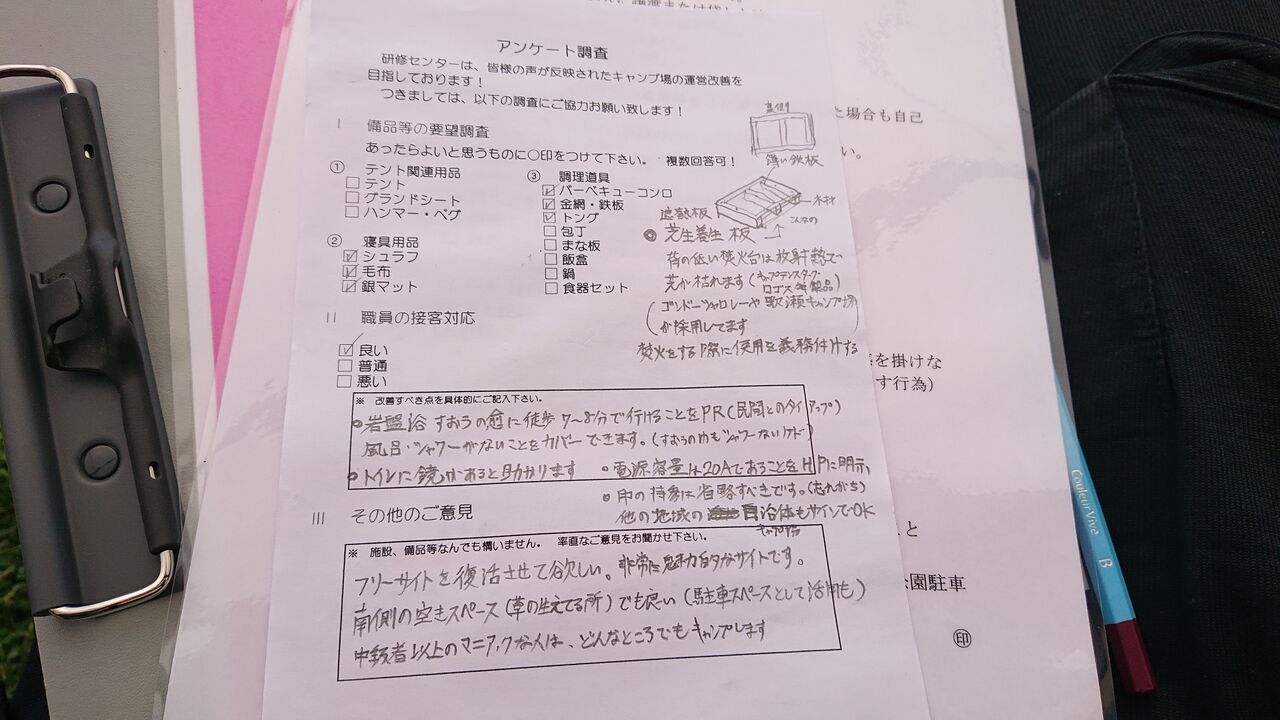 アンケート調査
研修センターは、皆様の声が反映されたキャンプ場の運営改善を
目指しております！
つきましては、以下の調査にご協力お願い致します！
Ⅰ 備品等の要望調査
あったらよいと思うものに○印をつけて下さい。 複数回答可！
① テント関連用品
□ テント
□ グランドシート
□ ハンマー・ペグ
② 寝具用品
☑ シュラフ
☑ 毛布
☑ 銀マット
③ 調理道具
☑ バーベキューコンロ
☑ 金網・鉄板
☑ トング
□ 包丁
□ まな板
□ 飯盒
□ 鍋
□ 食器セット
裏側
薄い鉄板
木材
遮熱板
こんなの
◎ 芝生養生板
背の低い焚火台は放射熱で
芝が枯れます(キャプテンスタッグ・
ロゴス等製品)
(ゴンドーシャロレーや歌瀬キャンプ場
が採用してます)
焚火をする際に使用を義務付けする
Ⅱ 職員の接客対応
☑ 良い
□ 普通
□ 悪い
※ 改善すべき点を具体的にご記入下さい。
○岩盤浴 すおうの愈に徒歩7〜8分で行けることをPR(民間とのタイアップ)
風呂・シャワーがないことをカバーできます。(すおうの
もシャワーないケド)
○トイレに鏡があると助かります
○電源容量は20AであることをHPに明示、
○印の持参は省略すべきです。(忘れがち)
他の地域の自治体もサインでOK
キャンプ場
Ⅲ その他のご意見
※ 施設、備品等なんでも構いません。 率直なご意見をお聞かせ下さい。
フリーサイトを復活させて欲しい。非常に魅力的なサイトです。
南側の空きスペース(草の生えてる所)でも良い(駐車スペースとして活用も)
中級者以上のマニアックな人は、どんなところでもキャンプします
た場合も自己
い。
を掛けな
す行為)
と
園駐車
㊞
CouleurVive B